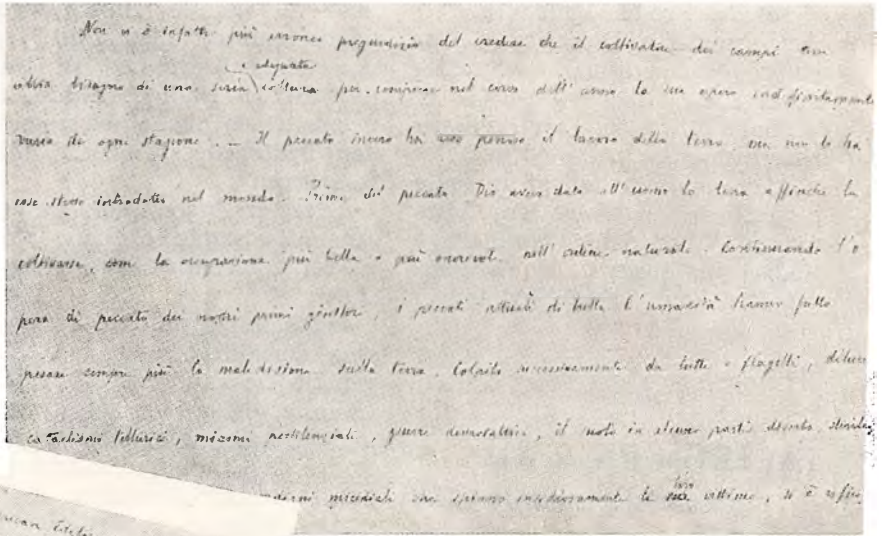 Non vi è infatti più erroneo pregiudizio del credere che il coltivatore dei campi non
e adeguata
abbia bisogno di una seria coltura per compiere nel corso dell'anno la sua opera
varia di ogni stagione. — Il peccato invero ha reso penoso il lavoro della terra, ma non lo ha
esso stesso introdotto nel mondo. Prima del peccato Dio aveva dato all'uomo la terra affinchè la
coltivasse, come la occupazione più bella e più onorevole nell'ordine naturale. Continuando l'o
pera di peccato dei nostri primi genitori, i peccati attuali di tutta l'umanità hanno fatto
pesare sempre più la maledizione sulla terra. Colpito successivamente da tutti i flagelli, diluvi
cataclismi tellurici, miasmi pestilenziali, guerre devastatrici, il suolo in alcune parti
loro
micidiali che spiano insidiosamente le sue vittime, si è